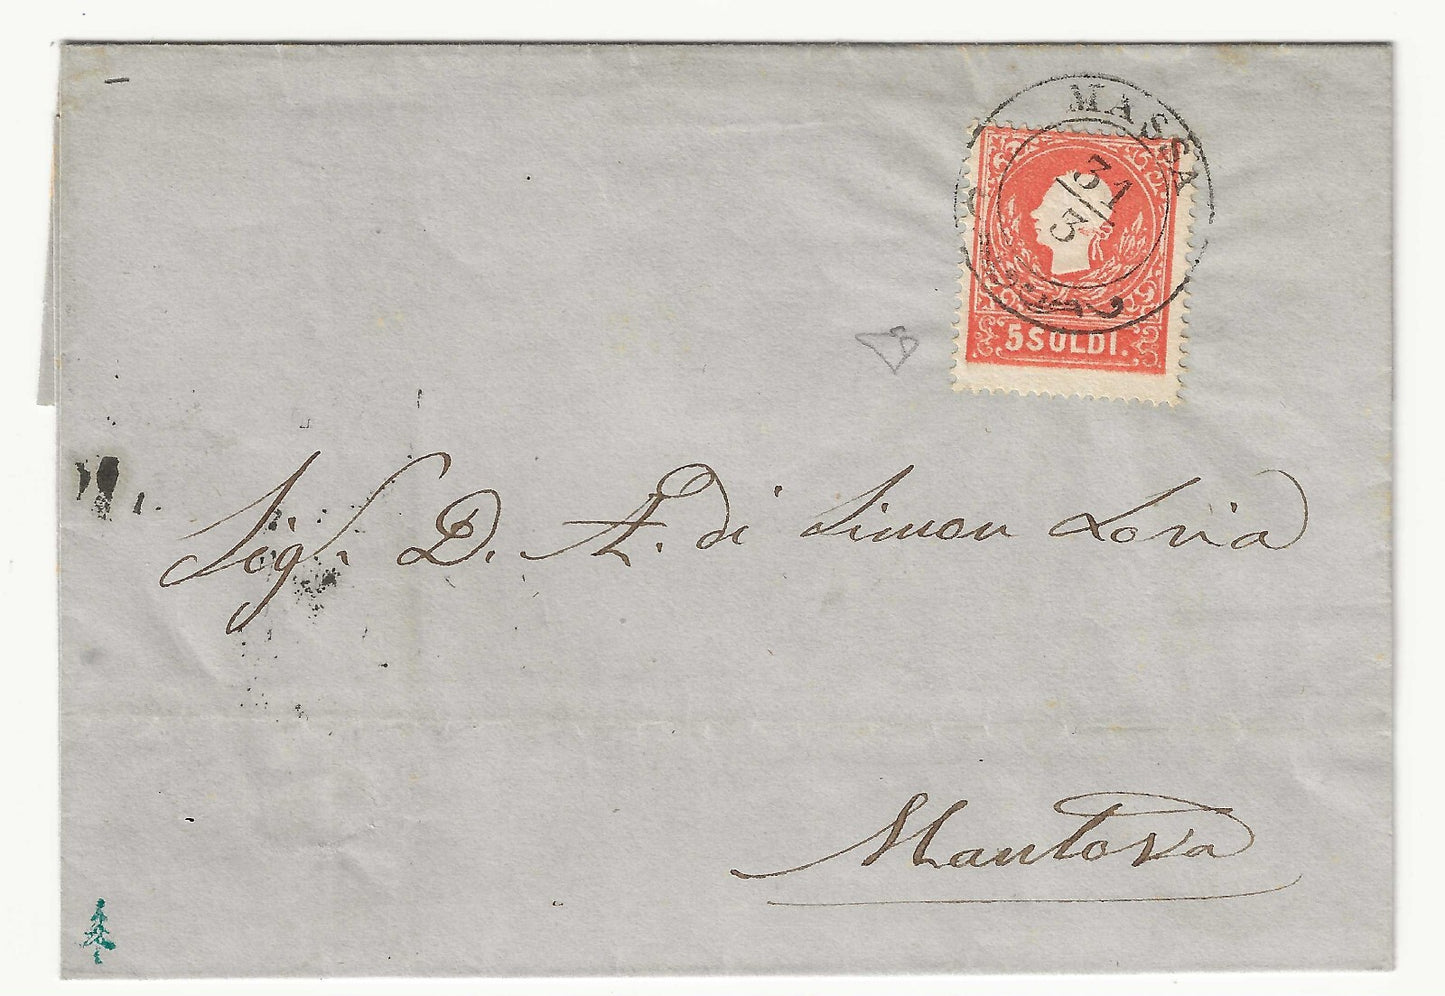 MASSA
31
3
5 SOLDI.
Sig. D. A. di Simon Loria
Mantova